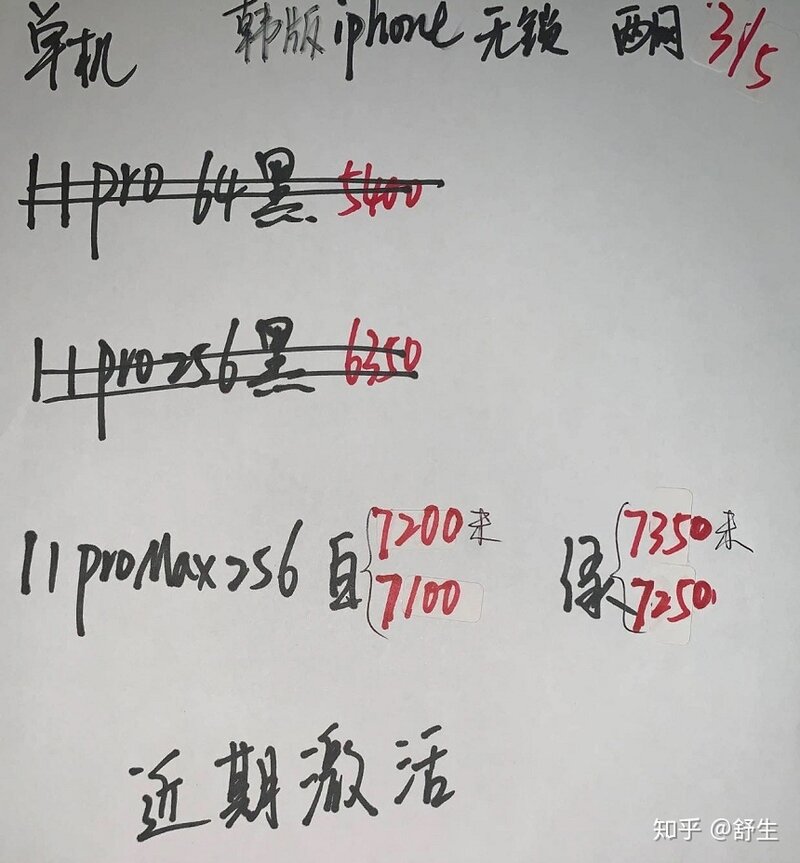 单机 韩版iphone 无锁 两网 31/5
11pro 64黑 5400
11pro 256黑 6350
11proMax 256 白 7200未 绿 7350未
7100 7250
近期激活
知乎 @舒生